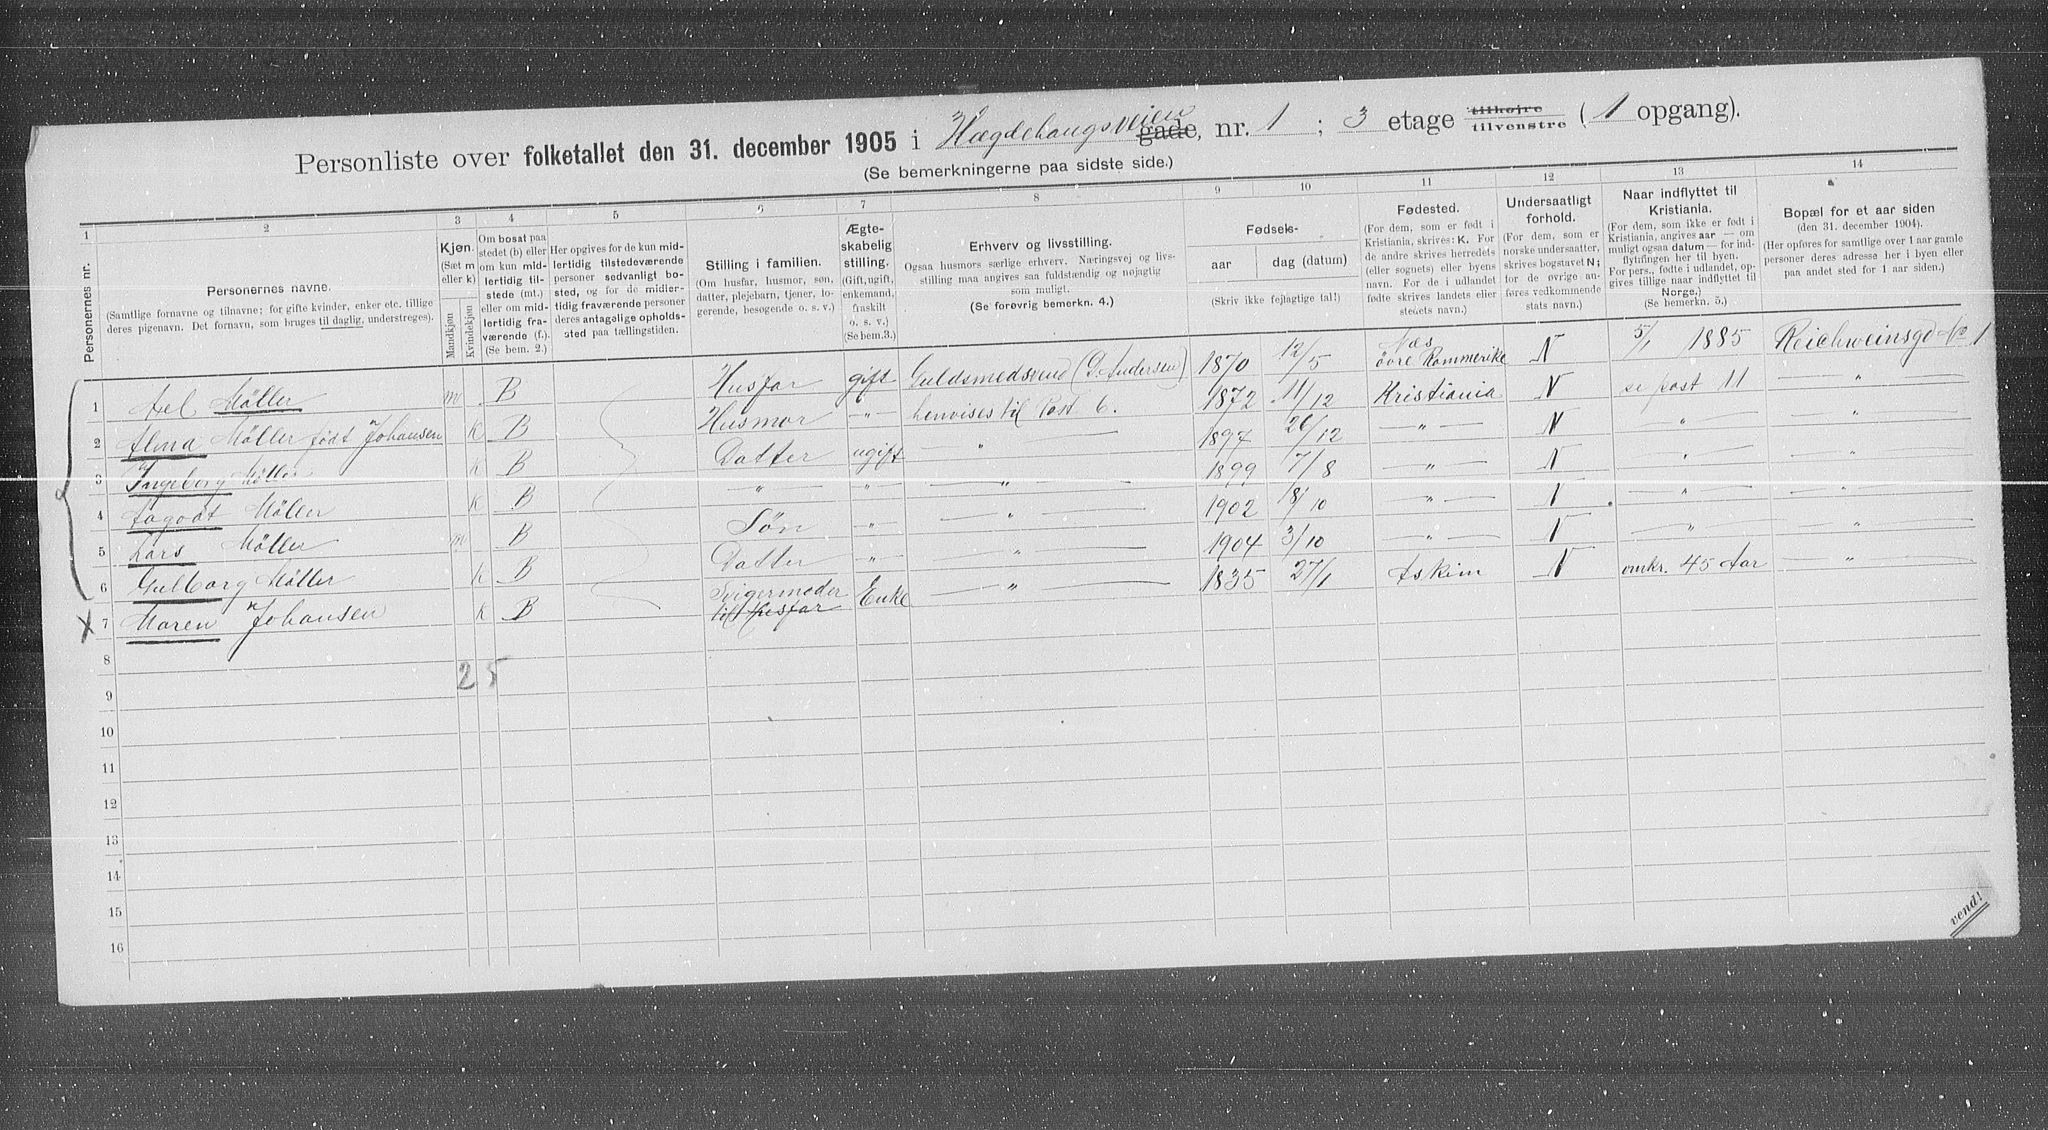 Personliste over folketallet den 31. december 1905 i Hægdehaugsveien gade, nr. 1 ; 3 etage tilhøjre tilvenstre ( 1 opgang).
(Se bemerkningerne paa sidste side.)
1 2 3 4 5 6 7 8 9 10 11 12 13 14
Personernes nr.
Personernes navne.
(Samtlige fornavne og tilnavne; for gifte kvinder, enker etc. tillige
deres pigenavn. Det fornavn, som bruges til daglig, understreges).
Kjøn.
(Sæt m
eller k)
Mandkjøn
Kvindekjøn
Om bosat paa
stedet (b) eller
om kun mid-
lertidig til-
stede (mt.)
eller om mid-
lertidig fra-
værende (f.).
(Se bem. 2.)
Her opgives for de kun mid-
lertidig tilstedeværende
personer sedvanligt bo-
sted, og for de midler-
tidig fraværende personer
deres antagelige opholds-
sted paa tællingstiden.
Stilling i familien.
(Om husfar, husmor, søn,
datter, plejebarn, tjener, lo-
gerende, besøgende o. s. v.)
Ægte-
skabelig
stilling.
(Gift, ugift,
enkemand,
fraskilt
o. s. v.)
(Se bem.3.)
Erhverv og livsstilling.
Ogsaa husmors særlige erhverv. Næringsvej og livs-
stilling maa angives saa fuldstændig og nøjagtig
som muligt.
(Se forøvrig bemerkn. 4.)
Fødsels-
aar
dag (datum)
(Skriv ikke fejlagtige tal!)
Fødested.
(For dem, som er født i
Kristiania, skrives: K. For
de andre skrives herredets
(eller sognets) eller byens
navn. For de i udlandet
fødte skrives landets eller
stedets navn.)
Undersaatligt
forhold.
(For dem, som er
norske undersaatter,
skrives bogstavet N;
for de øvrige an-
føres vedkommende
stats navn.)
Naar indflyttet til
Kristiania.
(For dem, som ikke er født i
Kristiania, angives aar — om
muligt ogsaa datum — for ind-
flytningen her til byen.
For pers., fødte i udlandet, op-
gives tillige naar indflyttet til
Norge.)
(Se bemerkn. 5.)
Bopæl for et aar siden
(den 31. december 1904).
(Her opføres for samtlige over 1 aar gamle
personer deres adresse her i byen eller
paa andet sted for 1 aar siden.)
1 Axel Möller m B Husfar gift Guldsmedsvend (D. Andersen) 1870 12/5 Næs övre Rommerike N 5/1 1885 Reichweinsgd No 1
2 Alma Möller født Johansen K B Husmor -"- henvises til Post 6. 1872 11/12 Kristiania N se post 11 -"-
3 Ingeborg Möller K B Datter ugift -"- 1897 /12 -"- N -"- -"-
4 Aagodt Möller K B -"- -"- -"- 1899 7/8 -"- N -"- -"-
5 Lars Möller m B Søn -"- -"- 1902 18/10 -"- N -"- -"-
6 Gulborg Möller K B Datter -"- -"- 1904 3/10 -"- N -"- -"-
X 7 Maren Johansen K B Svigermoder til Husfar Enke -"- 1835 27/1 Askim N omkr. 45 Aar -"-
8
2 5
9
10
11
12
13
14
15
16
vend!